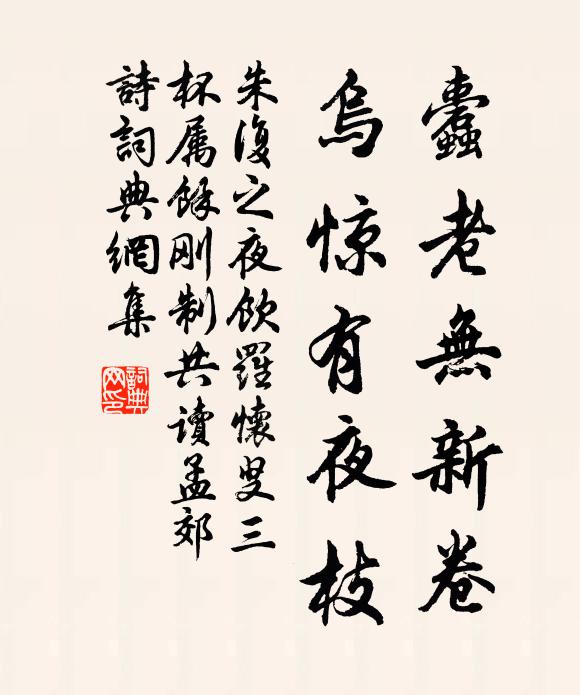 蠹老無新卷
烏惊有夜枝
朱復之夜飲羅懷叟三
杯属餘刚制共讀孟郊
詩詞典網集
詞典
网印